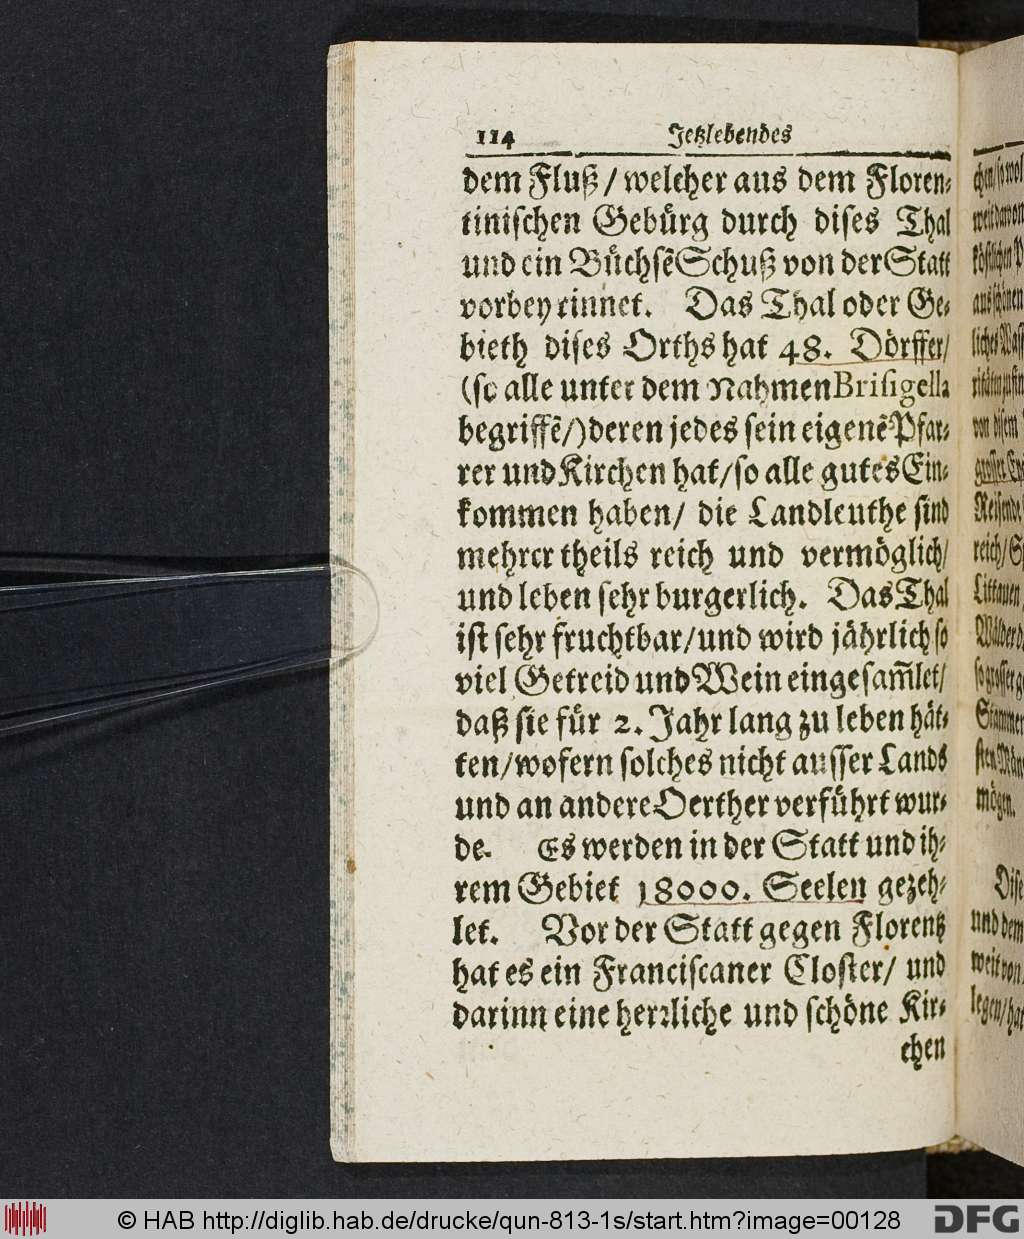 114 Jetzlebendes
dem Fluß / welcher aus dem Floren-
tinischen Gebürg durch dises Thal
und ein BüchsẽSchuß von der Statt
vorbey rinnet. Das Thal oder Ge-
bieth dises Orths hat 48. Dörffer/
(so alle unter dem Nahmen Brisigella
begriffẽ/) deren jedes sein eigenẽ Pfar-
rer und Kirchen hat/ so alle gutes Ein-
kommen haben/ die Landleuthe sind
mehrer theils reich und vermöglich/
und leben sehr burgerlich. Das Thal
ist sehr fruchtbar/ und wird jährlich so
viel Getreid und Wein eingesam̃let/
daß sie für 2. Jahr lang zu leben hät-
ten/ wofern solches nicht ausser Lands
und an andere Oerther verführt wur-
de. Es werden in der Statt und ih-
rem Gebiet 18000. Seelen gezeh-
let. Vor der Statt gegen Florentz
hat es ein Franciscaner Closter/ und
darinn eine herrliche und schöne Kir-
chen
chen/ so wol
weit davon
köstlichen
aus schönen
liches
von disem
grosser
Reisende
reich/
Littauen
Wälder
so grosser
Stammen
sten
mögen.
Dise
und dem
weit von
legen/ hat
© HAB http://diglib.hab.de/drucke/qun-813-1s/start.htm?image=00128
DFG